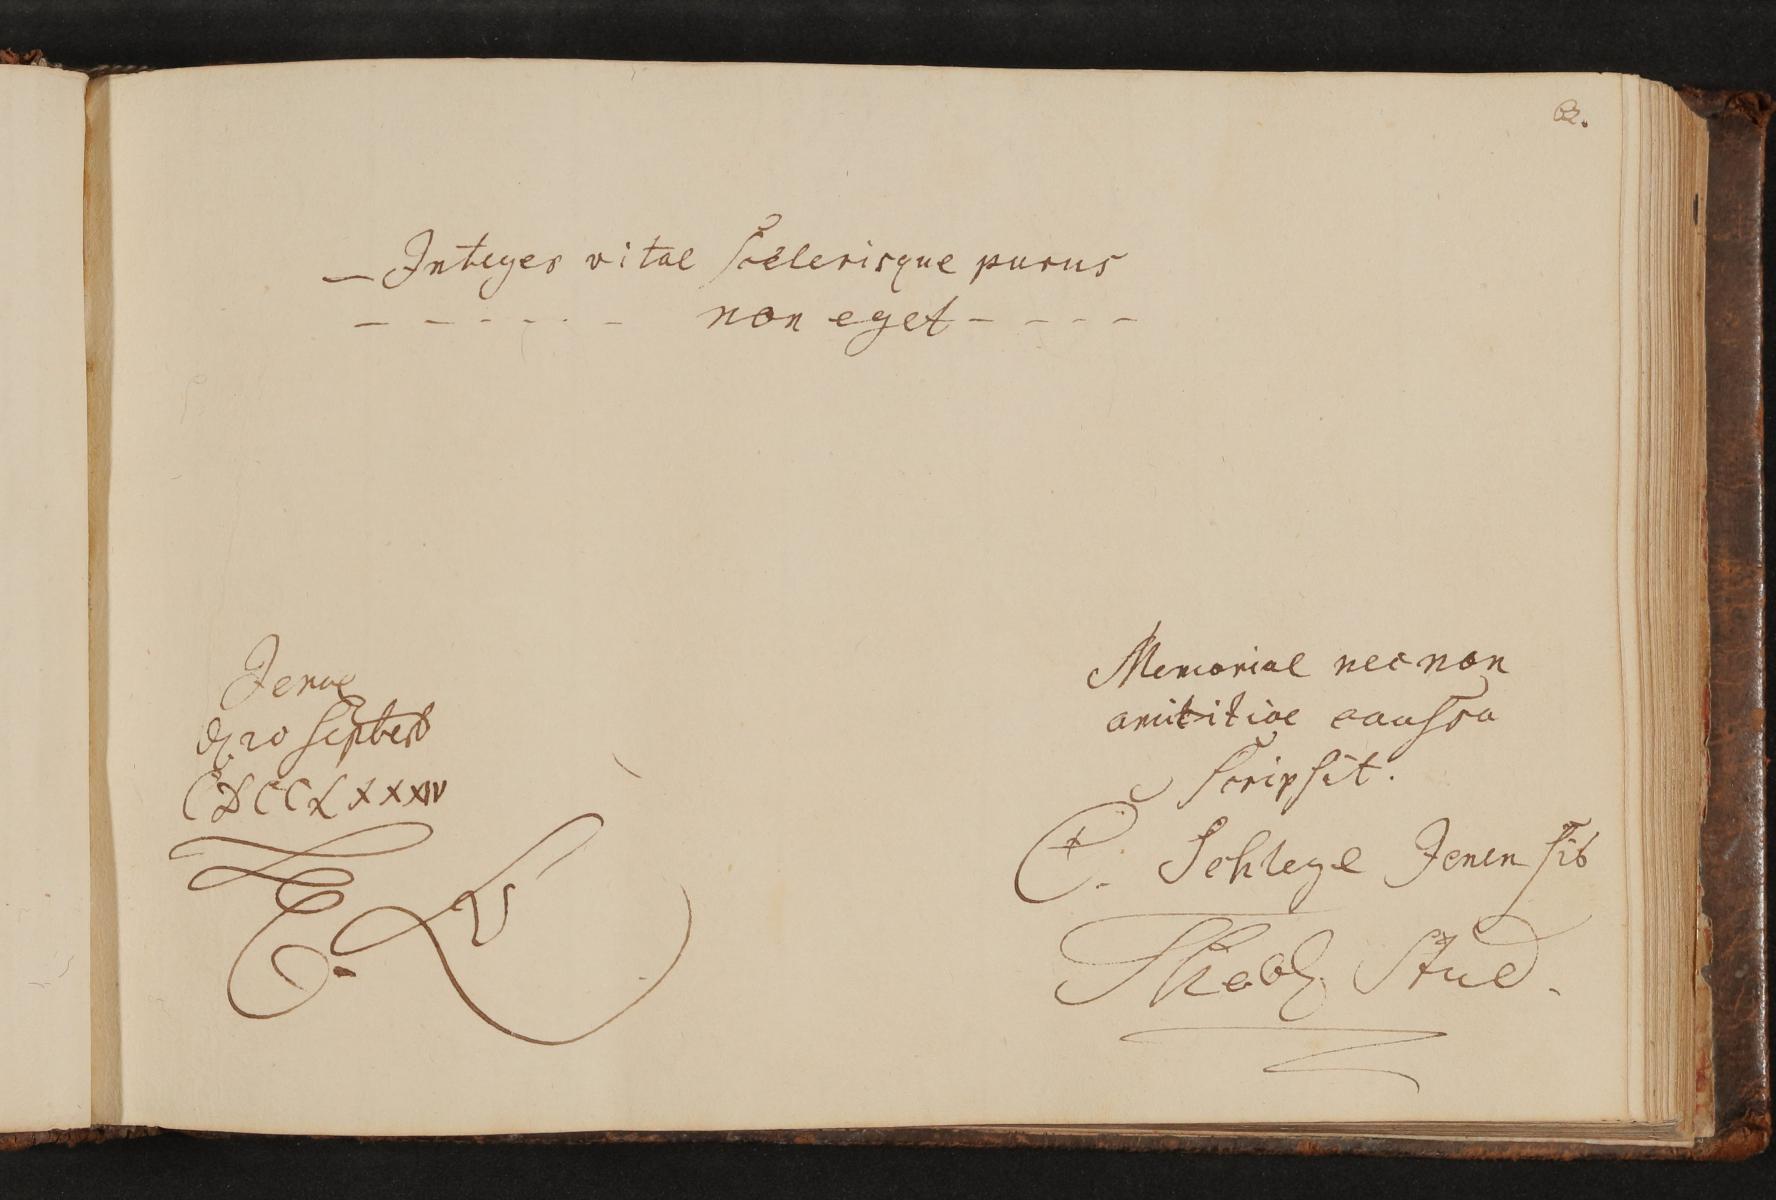 62.
Integer vitae scelerisque purus
- - - - - - non eget - - - -
Jenae
d. 20 Septbr
CDCCLXXXIV
Memoriae necnon
amititiae caussa
scripsit.
C. Schlege Jenensis
Stud.